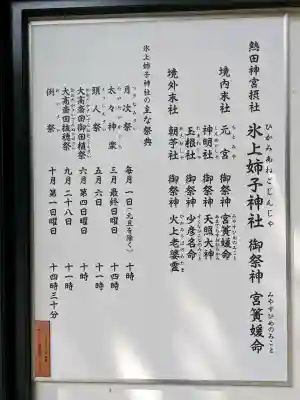 熱田神宮摂社
氷上姉子神社 御祭神 宮簀媛命
ひかみあねごじんじゃ みやすひめのみこと
境内末社 元宮 御祭神 宮簀媛命
神明社 御祭神 天照大神
境外末社 玉根社 御祭神 少彦名命
朝苧社 御祭神 火上老婆霊
氷上姉子神社の主な祭典
月次祭 毎月一日(元旦を除く) 十一時
太々神楽 三月最終日曜日 十四時
頭人祭 五月六日 十一時
大高斎田御田植祭 六月第四日曜日 十時
大高斎田抜穂祭 九月二十八日 十一時
例祭 十月第一日曜日 十四時三十分